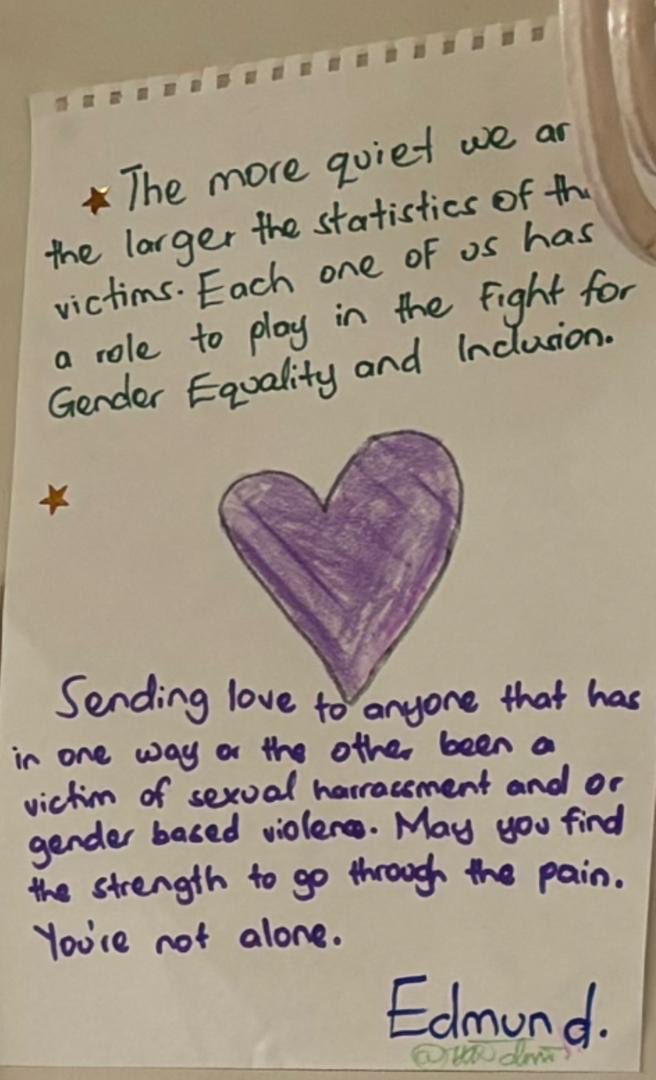 The more quiet we ar
the larger the statistics of th
victims. Each one of us has
a role to play in the Fight for
Gender Equality and Inclusion.
Sending love to anyone that has
in one way or the other been a
victim of sexual harrassment and or
gender based violence. May you find
the strength to go through the pain.
You're not alone.
Edmund.